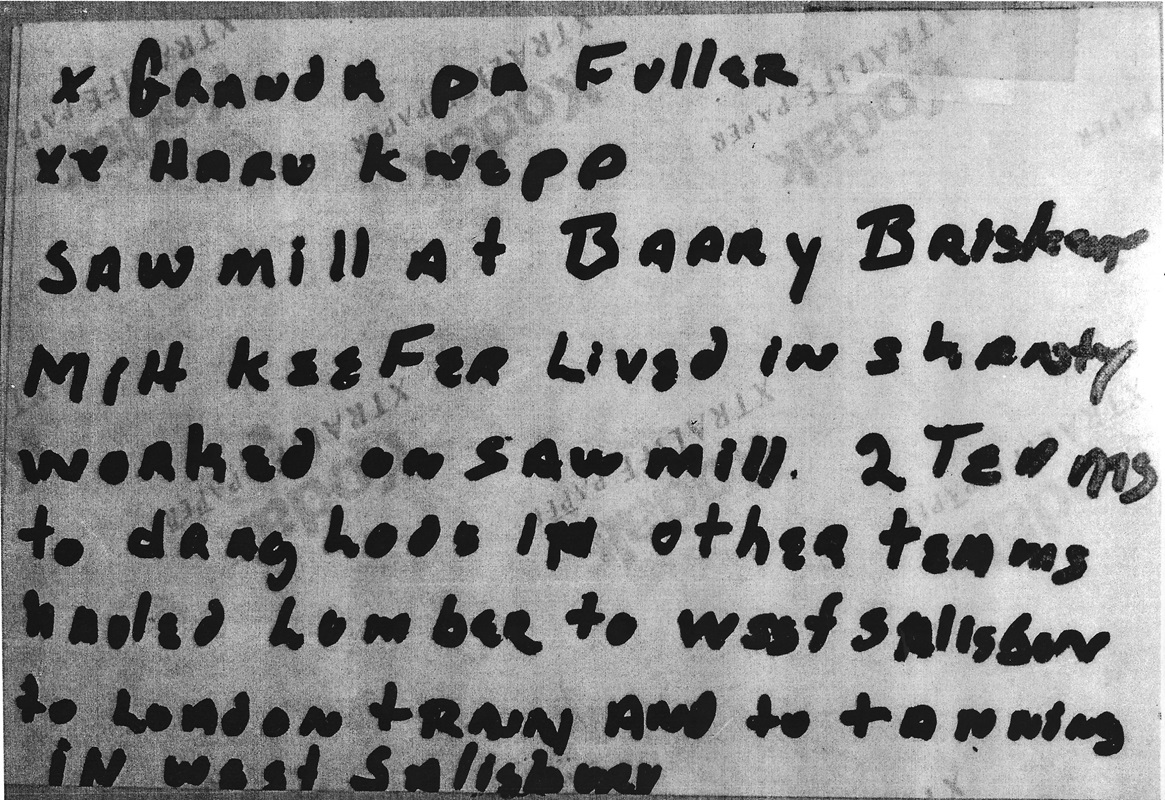 x Grandr pa Fuller
xx Harv Knepp
Sawmill At Baary Brisker
Milt Keefer Lived in shanty
worked on Sawmill. 2 Teams
to draag Lods In other teams
hauled Lumber to west Salisbury
to London train And to tanning
in west Salisbury